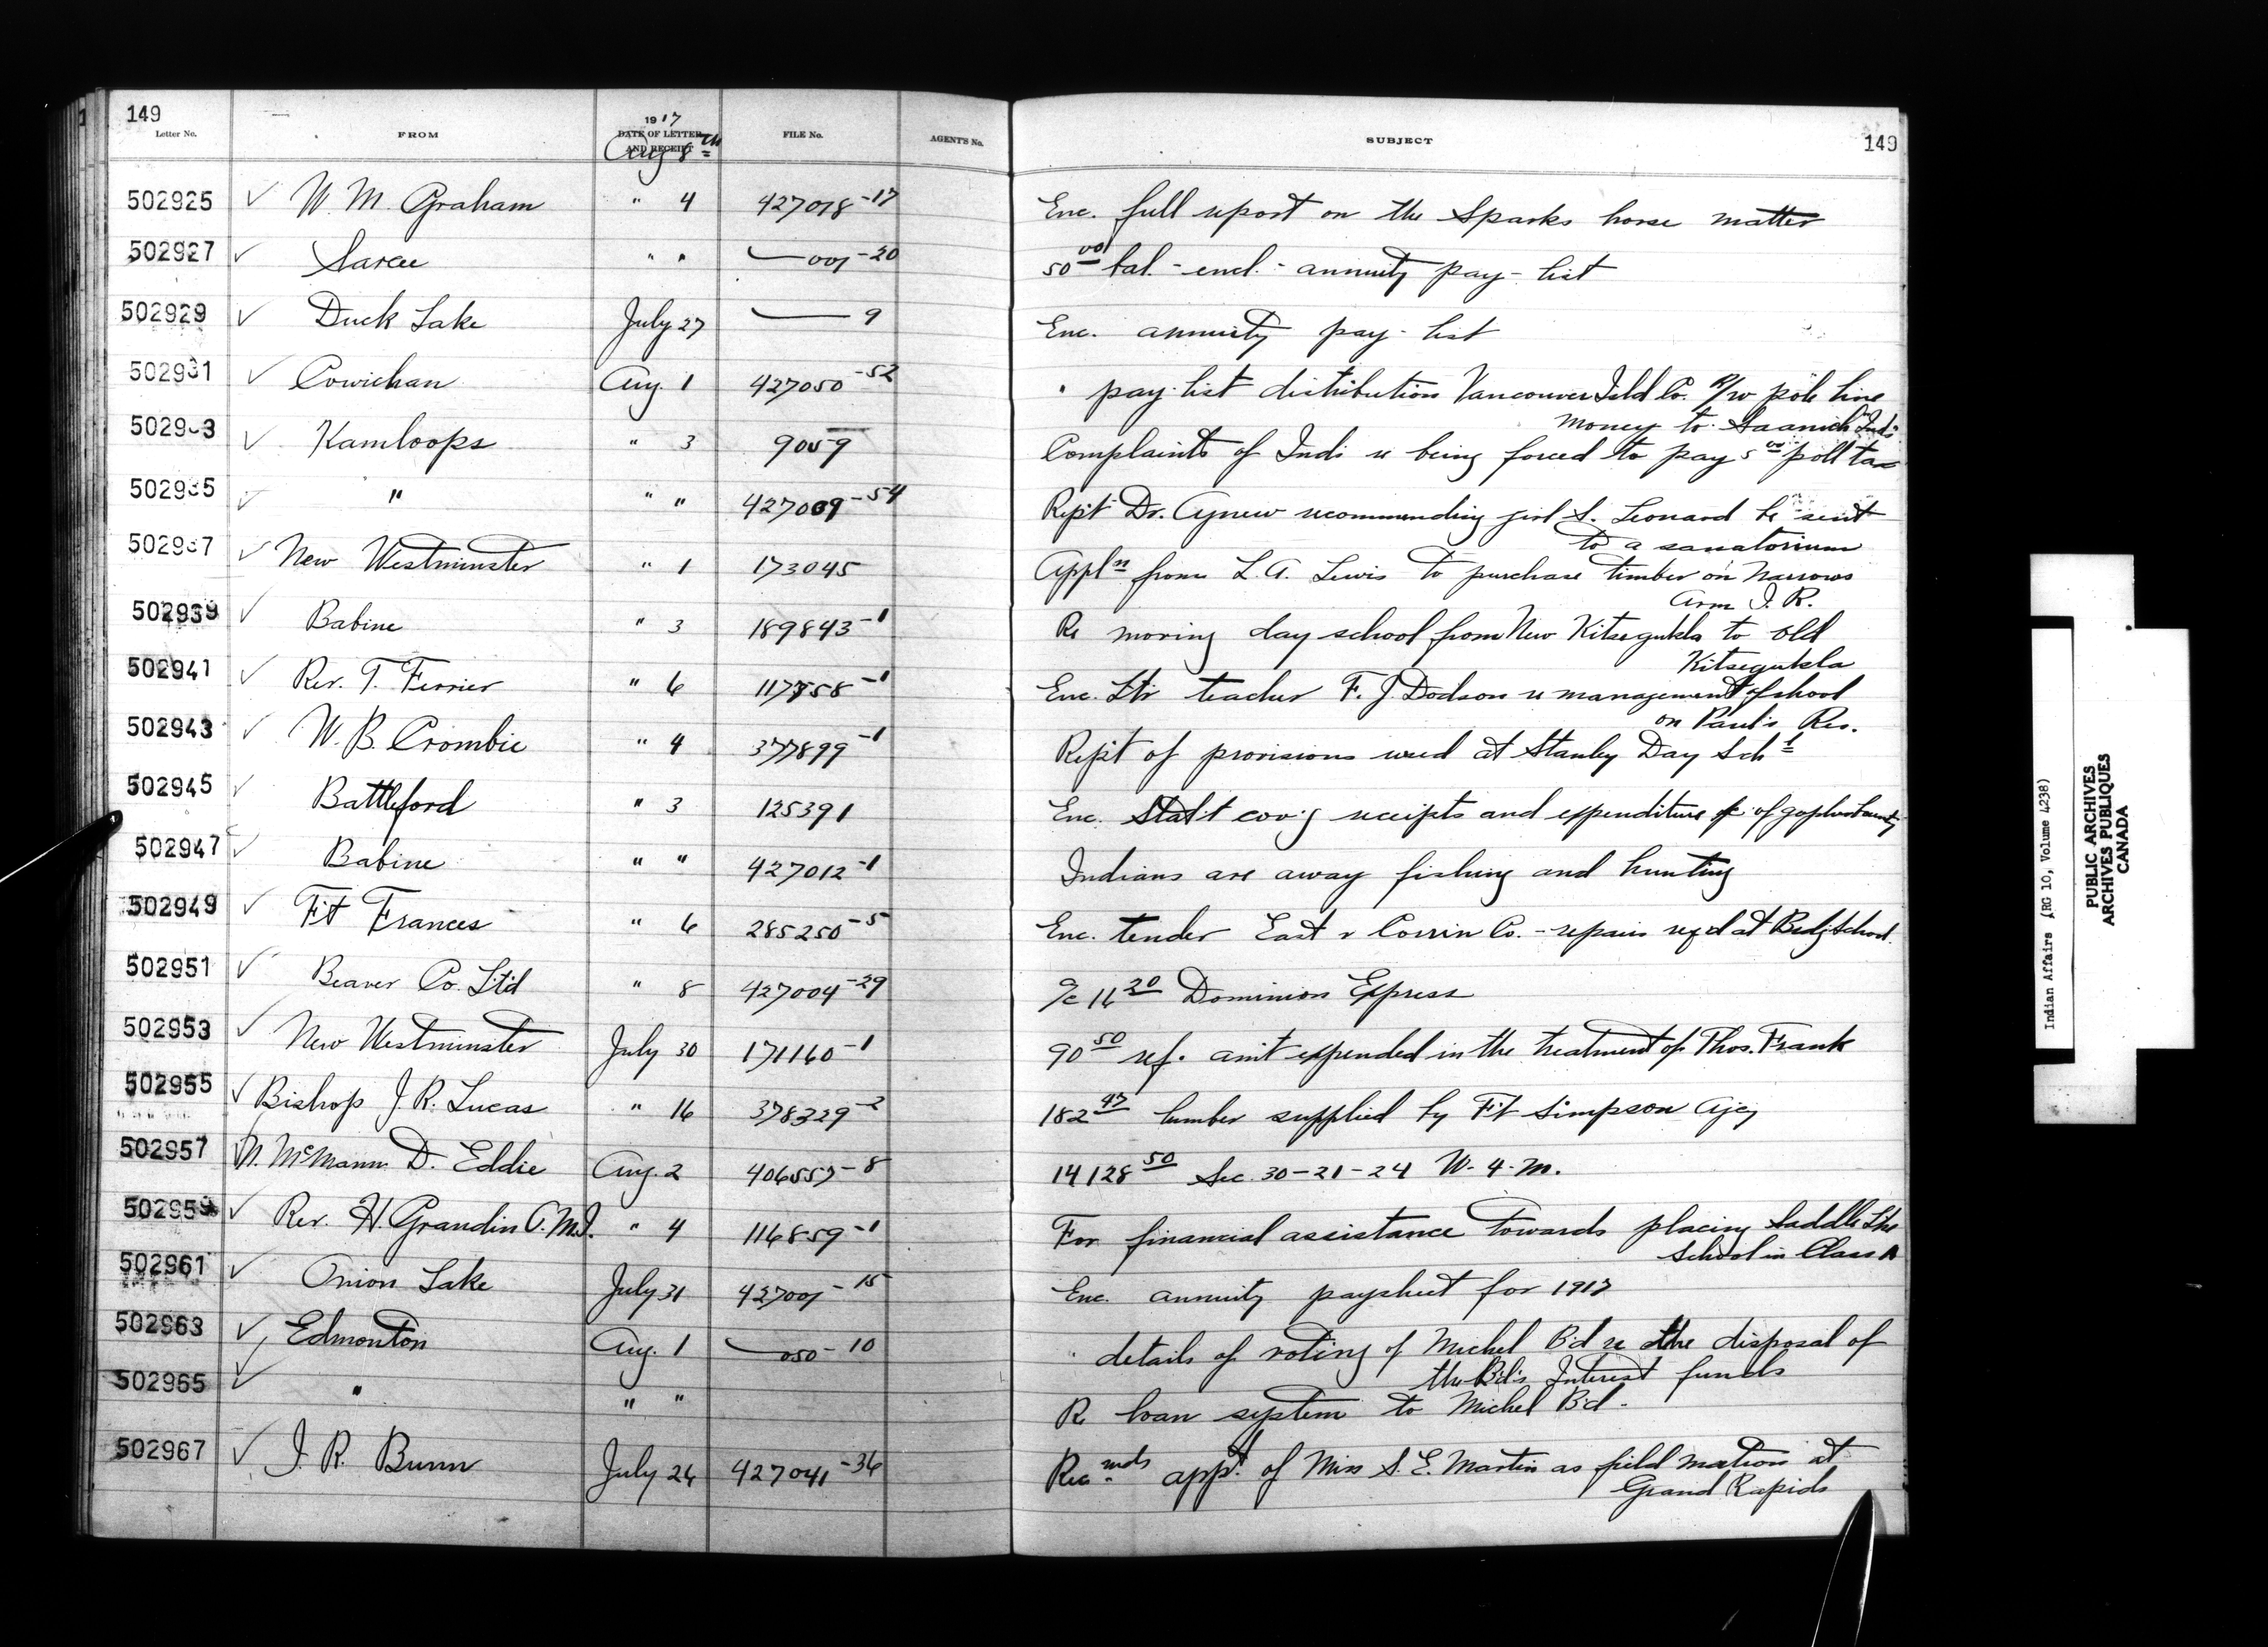 149
Letter No. FROM 1917 DATE OF LETTER AND RECEIPT FILE No. AGENT'S No. SUBJECT 149
Aug 8th
502925 ✓ W. M. Graham " 4 427018-17 Enc. full report on the Sparks horse matter
502927 ✓ Sarcee " " — 001-20 50 00 bal. - encl. - annuity pay-list
502929 ✓ Duck Lake July 27 — 9 Enc. annuity pay-list
502931 ✓ Cowichan Aug. 1 427050-52 " pay-list distribution Vancouver Isld Co. R/w pole line
money to Saanich Inds
502933 ✓ Kamloops " 3 9059 Complaints of Indi re being forced to pay 5 00 poll tax
502935 ✓ " " " 427009-54 Rept Dr. Agnew recommending girl S. Leonard be sent
to a sanatorium
502937 ✓ New Westminster " 1 173045 Appln from L. A. Lewis to purchase timber on Narrows
Arm I. R.
502939 ✓ Babine " 3 189843-1 Re moving day school from New Kitsegukla to old
Kitsegukla
502941 ✓ Rev. T. Ferrier " 6 117758-1 Enc. Ltr teacher F. J. Dodson re management of school
on Paul's Res.
502943 ✓ W. B. Crombie " 4 377899-1 Rept of provisions used at Stanley Day Schl
502945 ✓ Battleford " 3 125391 Enc. Stat't cov'g receipts and expenditure of gopher bounty
502947 ✓ Babine " " 427012-1 Indians are away fishing and hunting
502949 ✓ Ft Frances " 6 285250-5 Enc. tender East & Corrin Co. - repairs req'd at Bdg School.
502951 ✓ Beaver Co. Ltd " 8 427004-29 a/c 16 20 Dominion Express
502953 ✓ New Westminster July 30 171160-1 90 50 ref. am't expended in the treatment of Thos. Frank
502955 ✓ Bishop J. R. Lucas " 16 378329-2 182 47 lumber supplied by Ft Simpson Agcy
502957 ✓ N. McMann D. Eddie Aug. 2 406557-8 14128 50 Sec. 30-21-24 W. 4. M.
502959 ✓ Rev. H. Grandin O.M.I. " 4 116859-1 For financial assistance towards placing Saddle Lke
School in Class A
502961 ✓ Onion Lake July 31 427001-15 Enc. annuity paysheet for 1917
502963 ✓ Edmonton Aug. 1 — 050-10 " details of voting of Michel B'd re the disposal of
the Bd's Interest funds
502965 ✓ " " " Re loan system to Michel B'd.
502967 ✓ J. R. Bunn July 24 427041-36 Recmds app't of Miss S. E. Martin as field matron at
Grand Rapids
Indian Affairs (RG 10, Volume 4238)
PUBLIC ARCHIVES
ARCHIVES PUBLIQUES
CANADA